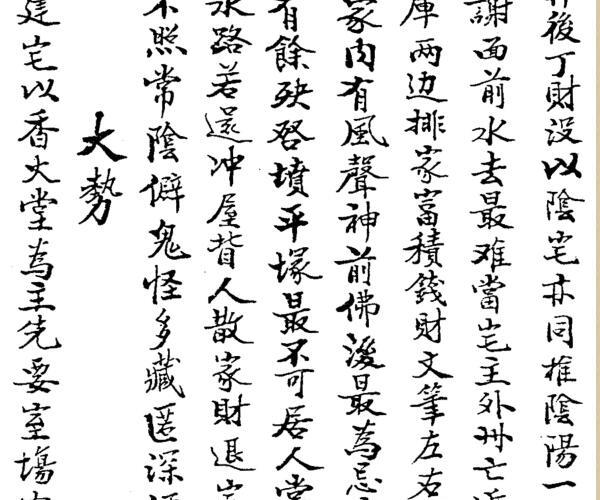 後丁財没以陰宅亦同推陰陽一
謝面前水去最难當宅主外州亡
庫两边排家富積錢財文筆左右
家内有風聲神前佛後最為忌
有餘殃啓墳平塚最不可居人堂
水路若還冲屋背人散家財退
不照常陰僻鬼怪多藏匿深
大勢
建宅以香火堂為主先要室場